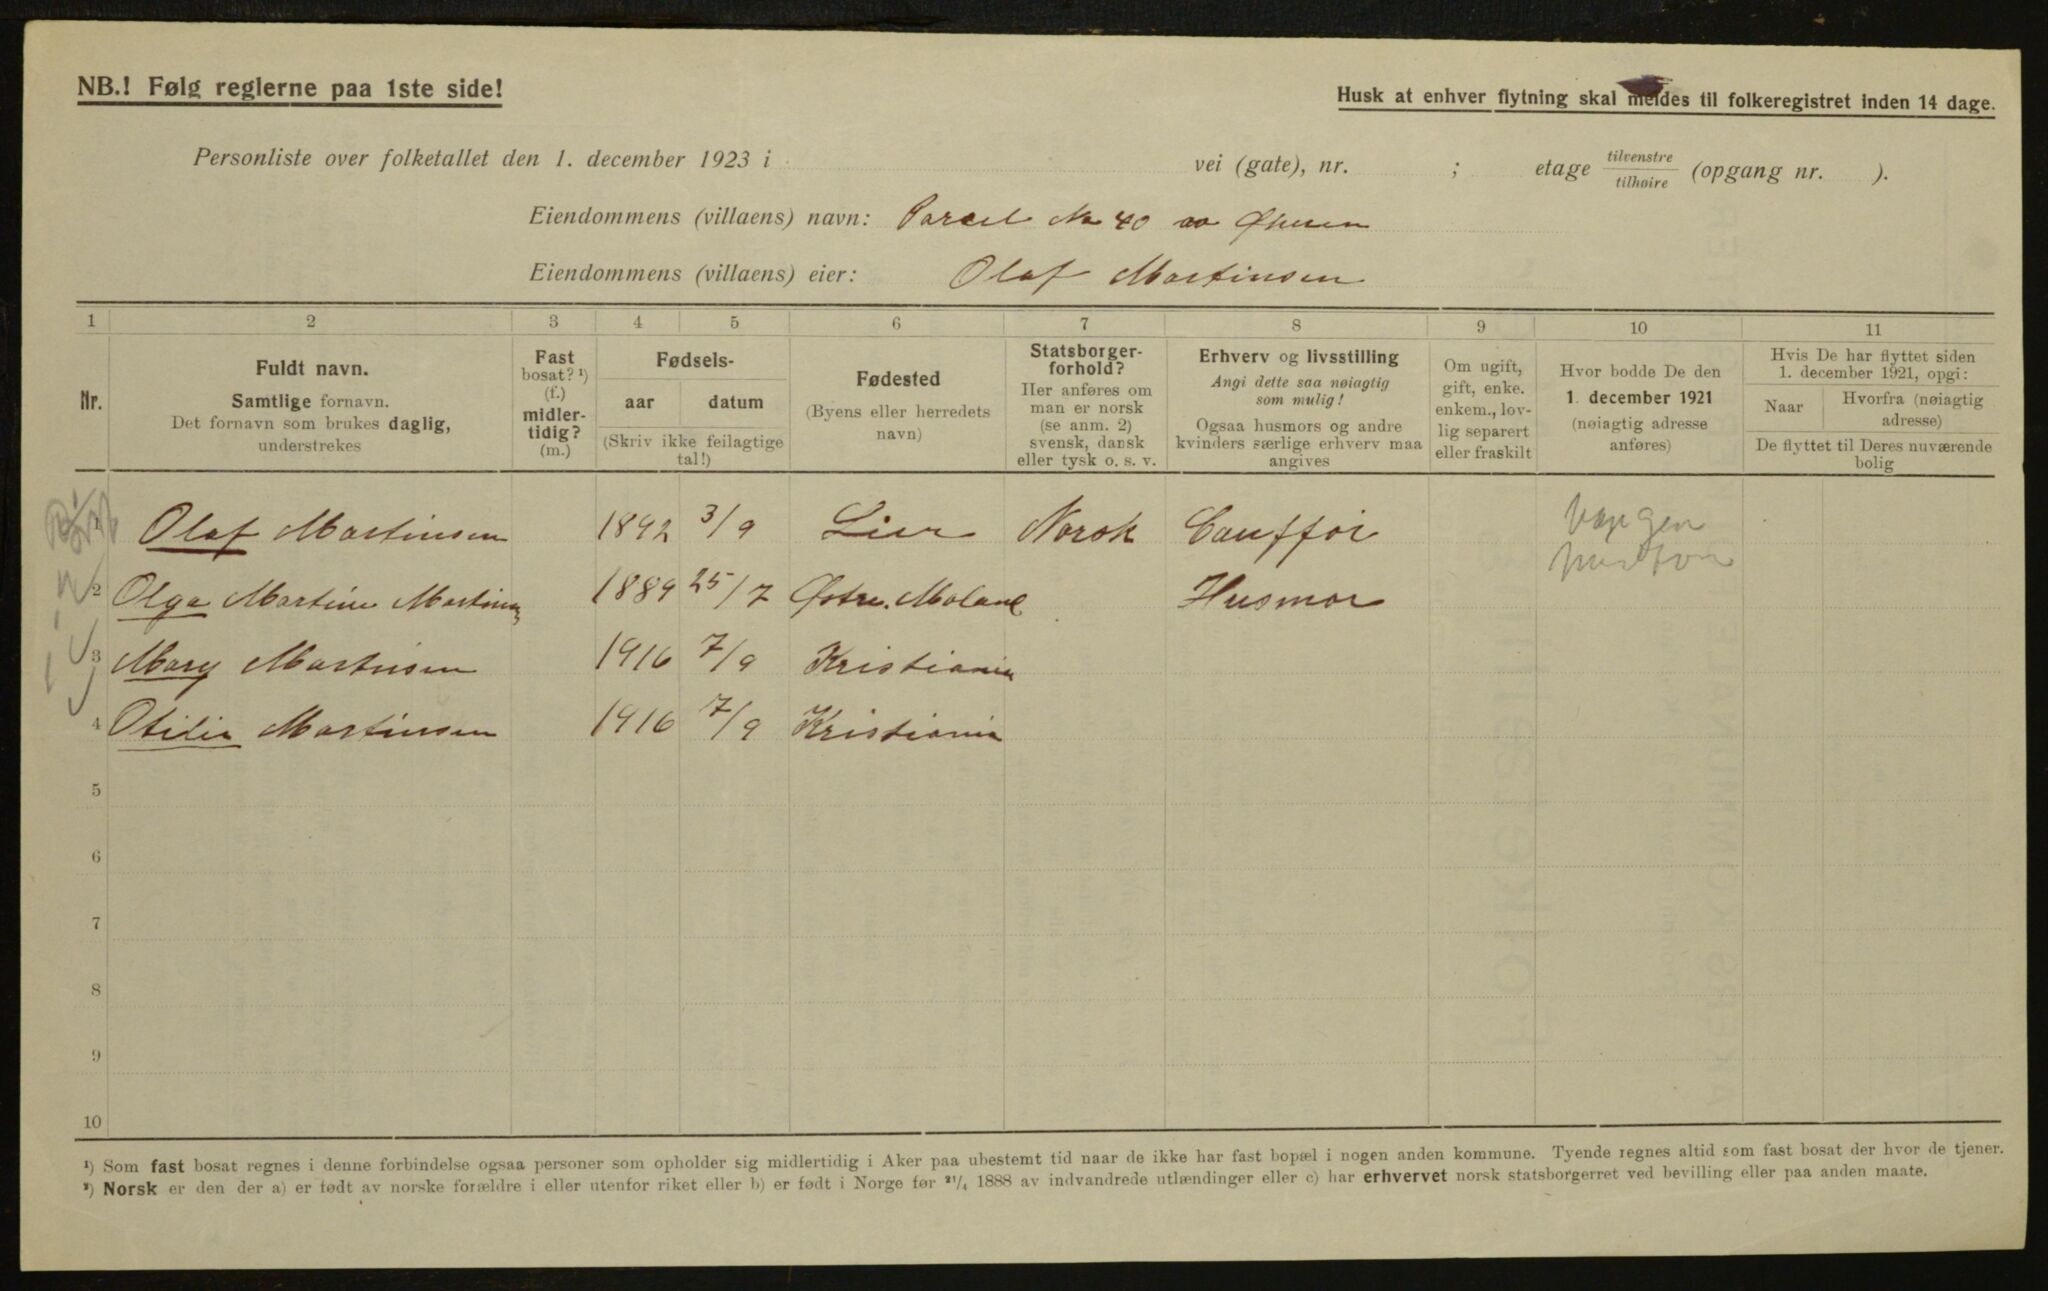 NB.! Følg reglerne paa 1ste side!
Husk at enhver flytning skal meldes til folkeregistret inden 14 dage.
Personliste over folketallet den 1. december 1923 i vei (gate), nr. ; etage tilvenstre (opgang nr. ).
tilhøire
Eiendommens (villaens) navn: Parcel No 40
Eiendommens (villaens) eier: Olaf Martinsen
1 2 3 4 5 6 7 8 9 10 11
Nr.
Fuldt navn.
Samtlige fornavn.
Det fornavn som brukes daglig,
understrekes
Fast
bosat? ¹)
(f.)
midler-
tidig?
(m.)
Fødsels-
aar datum
(Skriv ikke feilagtige
tal!)
Fødested
(Byens eller herredets
navn)
Statsborger-
forhold?
Her anføres om
man er norsk
(se anm. 2)
svensk, dansk
eller tysk o. s. v.
Erhverv og livsstilling
Angi dette saa nøiagtig
som mulig!
Ogsaa husmors og andre
kvinders særlige erhverv maa
angives
Om ugift,
gift, enke.
enkem., lov-
lig separert
eller fraskilt
Hvor bodde De den
1. december 1921
(nøiagtig adresse
anføres)
Hvis De har flyttet siden
1. december 1921, opgi:
Naar
Hvorfra (nøiagtig
adresse)
De flyttet til Deres nuværende
bolig
1 Olaf Martinsen 1892 3/9 Lier Norsk Cauffør
2 Olga Martine Martinsen 1889 25/7 Østre. Husmor
3 Mary Martinsen 1916 7/9 Kristiania
4 Otilia Martinsen 1916 7/9 Kristiania
5
6
7
8
9
10
¹) Som fast bosat regnes i denne forbindelse ogsaa personer som opholder sig midlertidig i Aker paa ubestemt tid naar de ikke har fast bopæl i nogen anden kommune. Tyende regnes altid som fast bosat der hvor de tjener.
²) Norsk er den der a) er født av norske forældre i eller utenfor riket eller b) er født i Norge før 21/4 1888 av indvandrede utlændinger eller c) har erhvervet norsk statsborgerret ved bevilling eller paa anden maate.